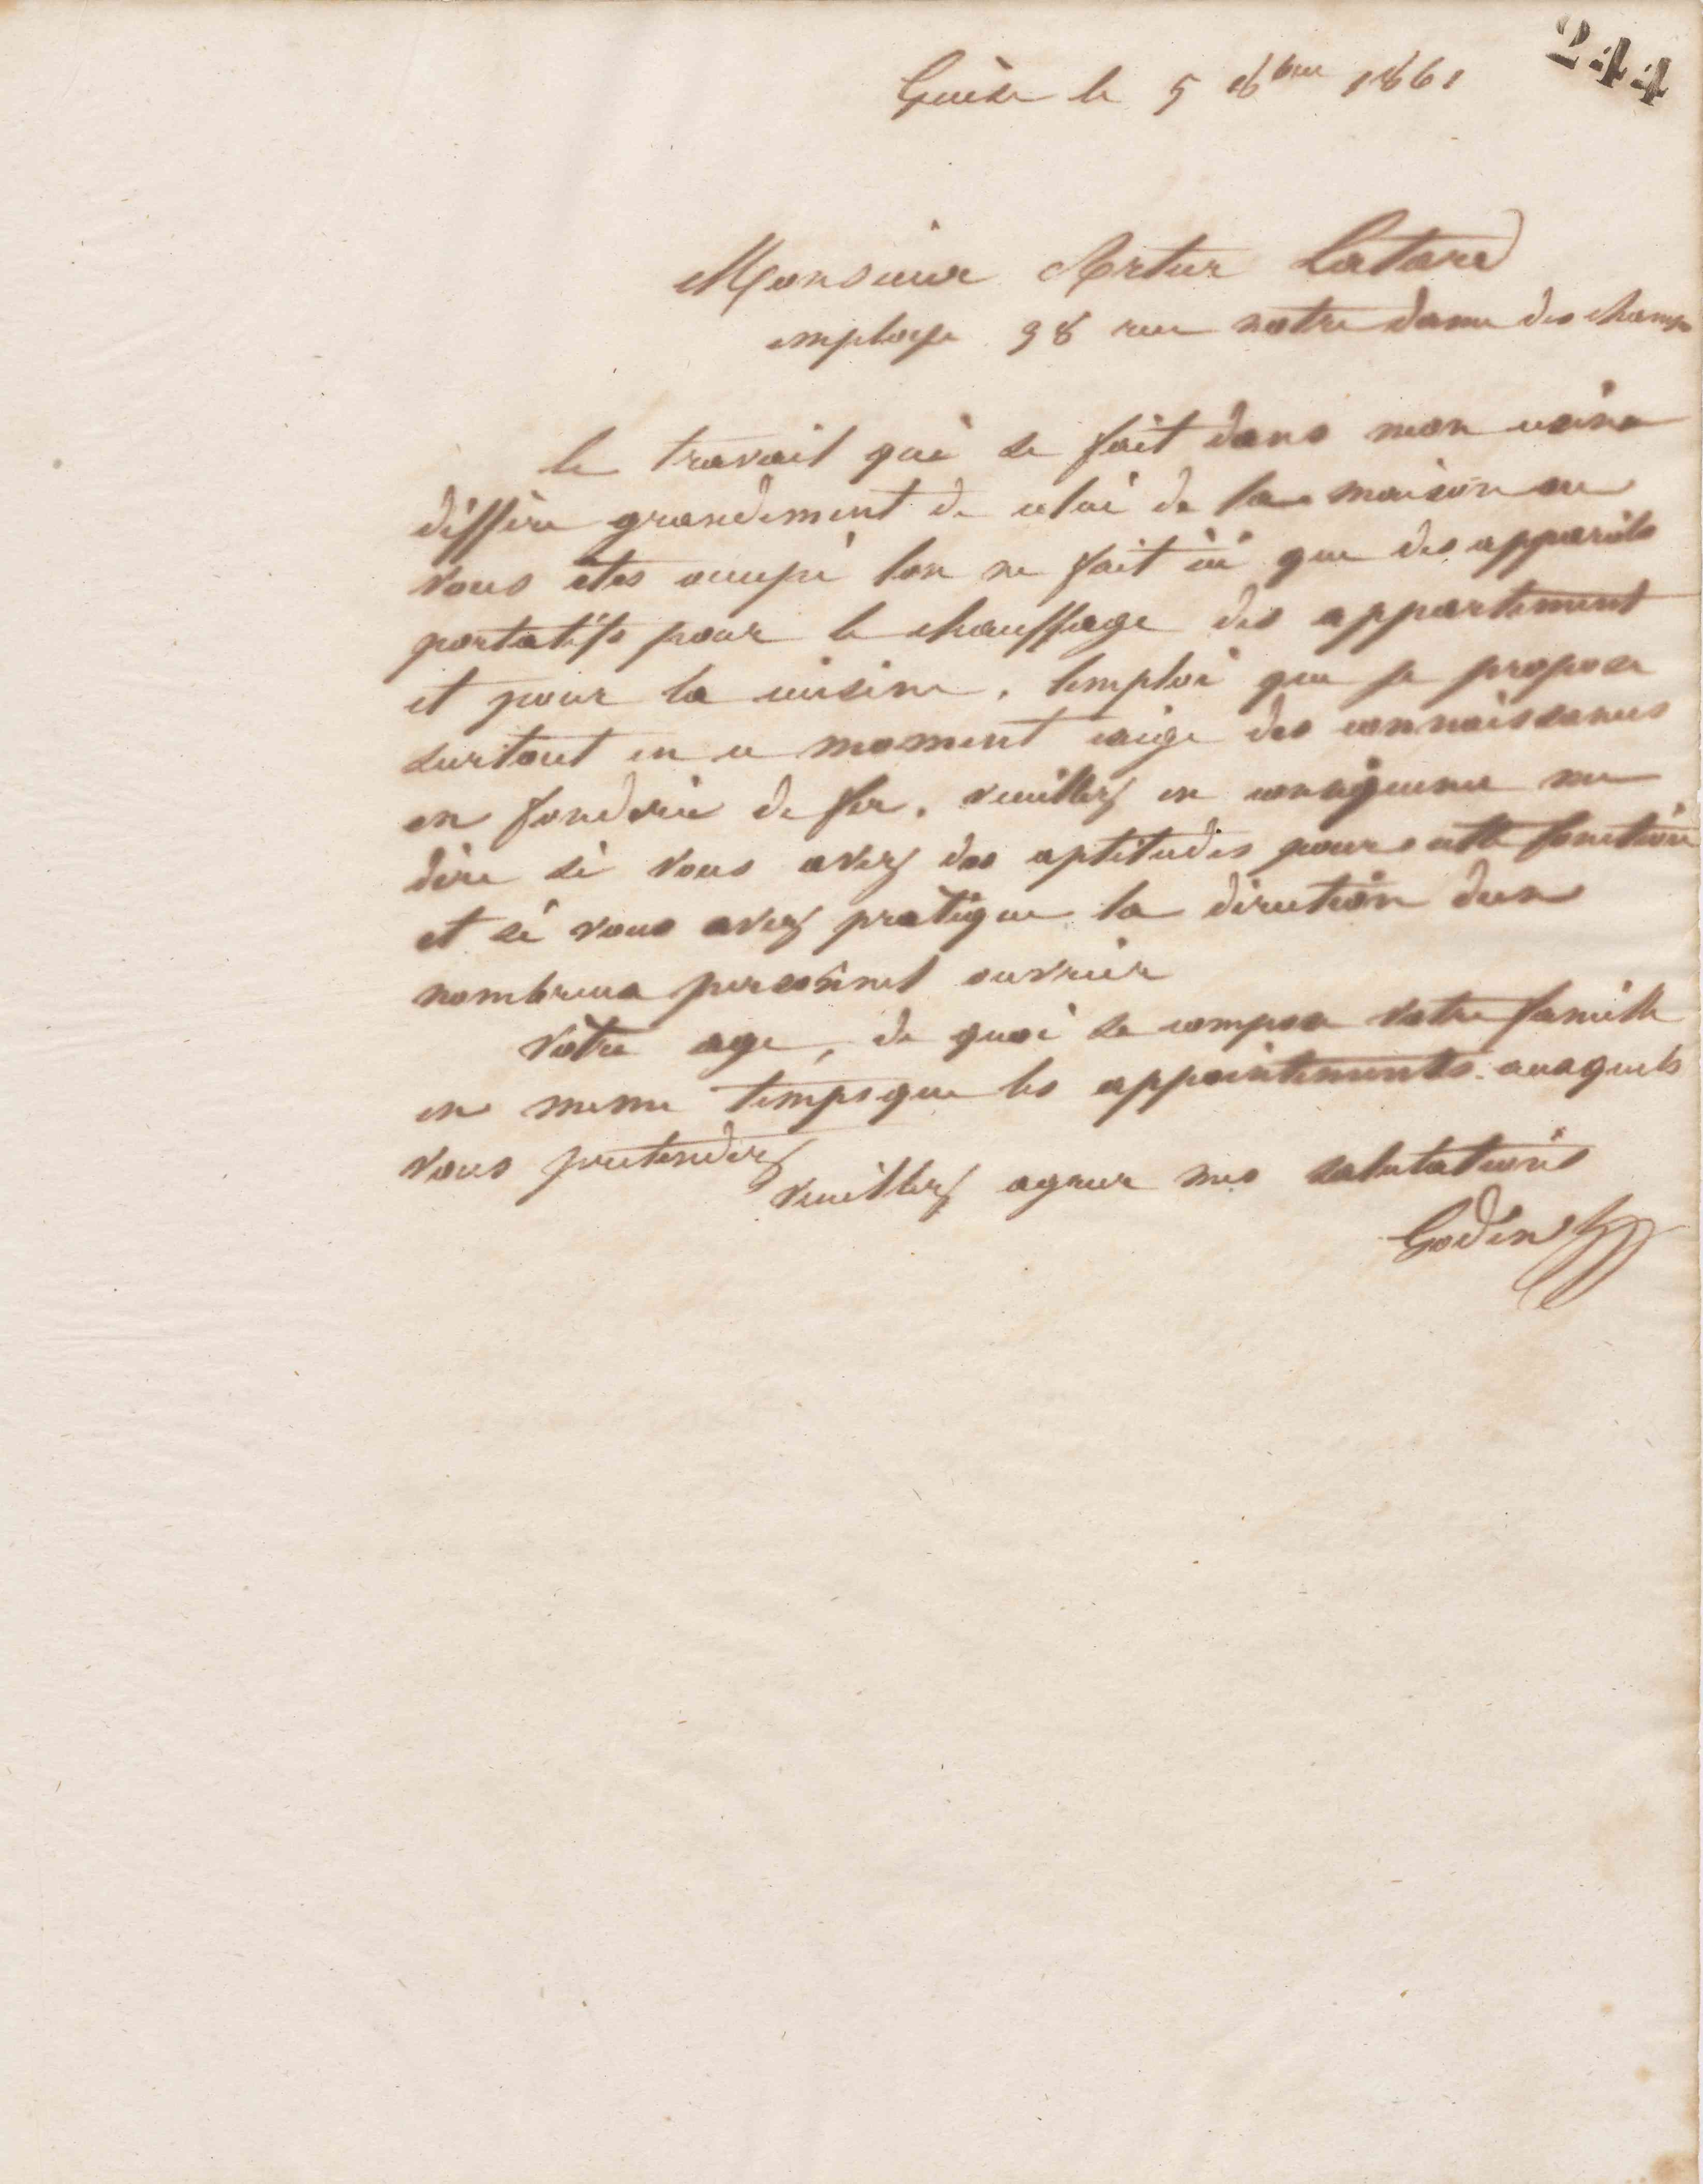 244
Guise le 5 8bre 1861
Monsieur Artur Latard
employe 98 rue notre dame des champs
le travail qui se fait dans mon usine
diffère grandement de celui de la maison ou
vous etes occupé lon ne fait ici que des appareils
portatifs pour le chauffage des appartement
et pour la cuisine. lemploi que je propose
surtout en ce moment exige des connaissances
en fonderie de fer. veuillez en consequence me
dire si vous avez des aptitudes pour cette fonction
et si vous avez pratique la direction dun
nombreux personnel ouvrier
votre age, de quoi se compose votre famille
en meme temps que les appointements auxquels
vous pretendez
veuillez agreer mes salutations
Godin